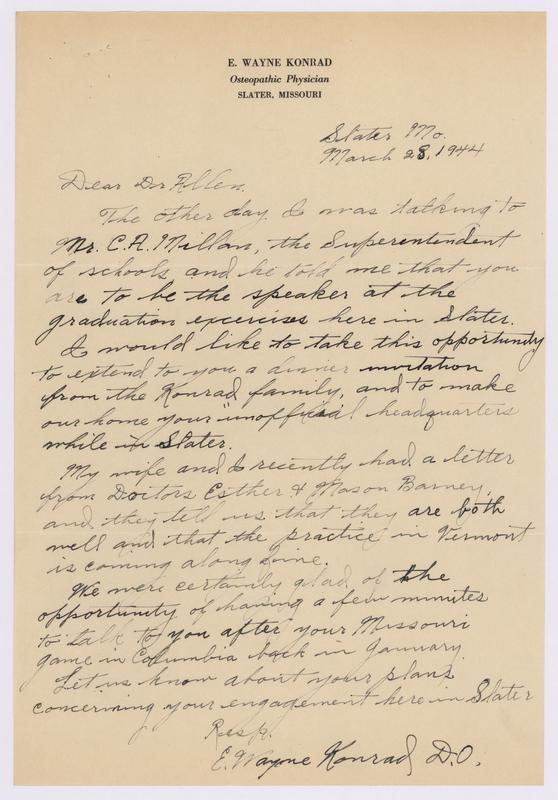 E. WAYNE KONRAD
Osteopathic Physician
SLATER, MISSOURI
Slater Mo.
March 28, 1944
Dear Dr Allen.
The other day I was talking to
Mr. C. A. Millan, the Superintendent
of schools and he told me that you
are to be the speaker at the
graduation exercises here in Slater.
I would like to take this opportunity
to extend to you a dinner invitation
from the Konrad family, and to make
our home your "unofficial headquarters
while in Slater.
My wife and I recently had a letter
from Doctors Esther & Mason Barney,
and they tell us that they are both
well and that the practice in Vermont
is coming along fine.
We were certainly glad of the
opportunity of having a few minutes
to talk to you after your Missouri
game in Columbia back in January.
Let us know about your plans
concerning your engagement here in Slater
Resp.
E. Wayne Konrad, D.O.